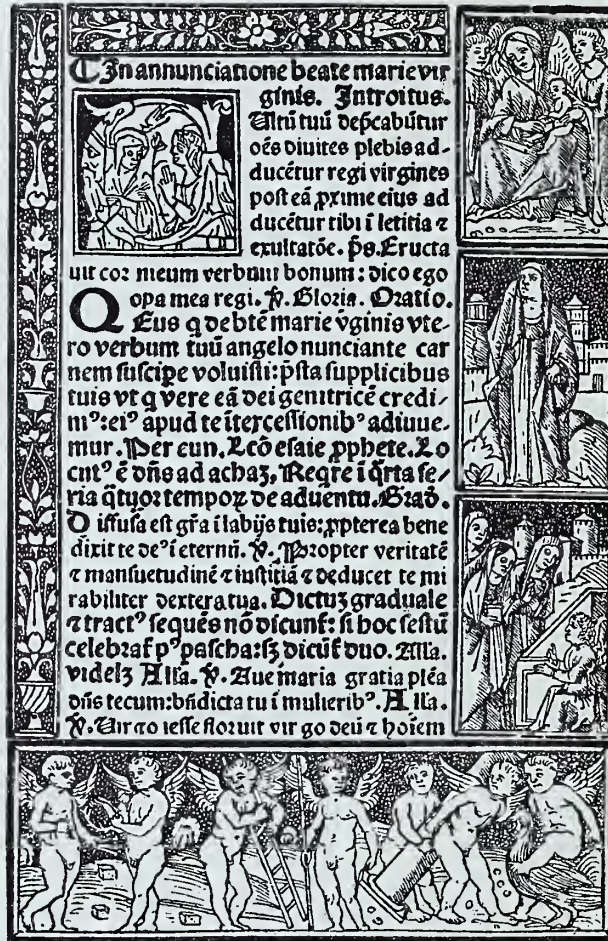 ℂ In annunciatione beate marie vir
ginis. Introitus.
Ultū tuū dep̄cabūtur
oēs diuites plebis ad-
ducētur regi virgines
post eā ꝓxime eius ad
ducētur tibi ī letitia ⁊
exultatōe. p̄s. Eructa
uit cor meum verbum bonum: dico ego
opa mea regi. ℣. Gloria. Oratio.
QEus q de btē marie v̄ginis vte-
ro verbum tuū angelo nunciante car
nem suscipe voluisti: p̄sta supplicibus
tuis vt q vere eā dei genitricē credi-
mꝰ: eiꝰ apud te ītercessionibꝰ adiuue-
mur. Per eun. Lcō esaie ꝓphete. Lo
cutꝰ ē dn̄s ad achaz, Reqre ī q̄rta fe-
ria q̄tuor tempoꝝ de aduentu. Grad̄.
Diffusa est gr̄a ī labijs tuis: ꝓpterea bene
dixit te deꝰ ī eternū. ℣. Propter veritatē
⁊ mansuetudinē ⁊ iustitiā ⁊ deducet te mi
rabiliter dextera tua. Dictuz graduale
⁊ tractꝰ sequēs nō dicunt̄: si hoc festū
celebrat̄ pꝰ pascha: sz dicūt̄ duo. Alla.
videlz Alla. ℣. Aue maria gratia plēa
dn̄s tecum: bn̄dicta tu ī mulieribꝰ. Alla.
℣. Uirgo iesse floruit virgo deū ⁊ hoīem